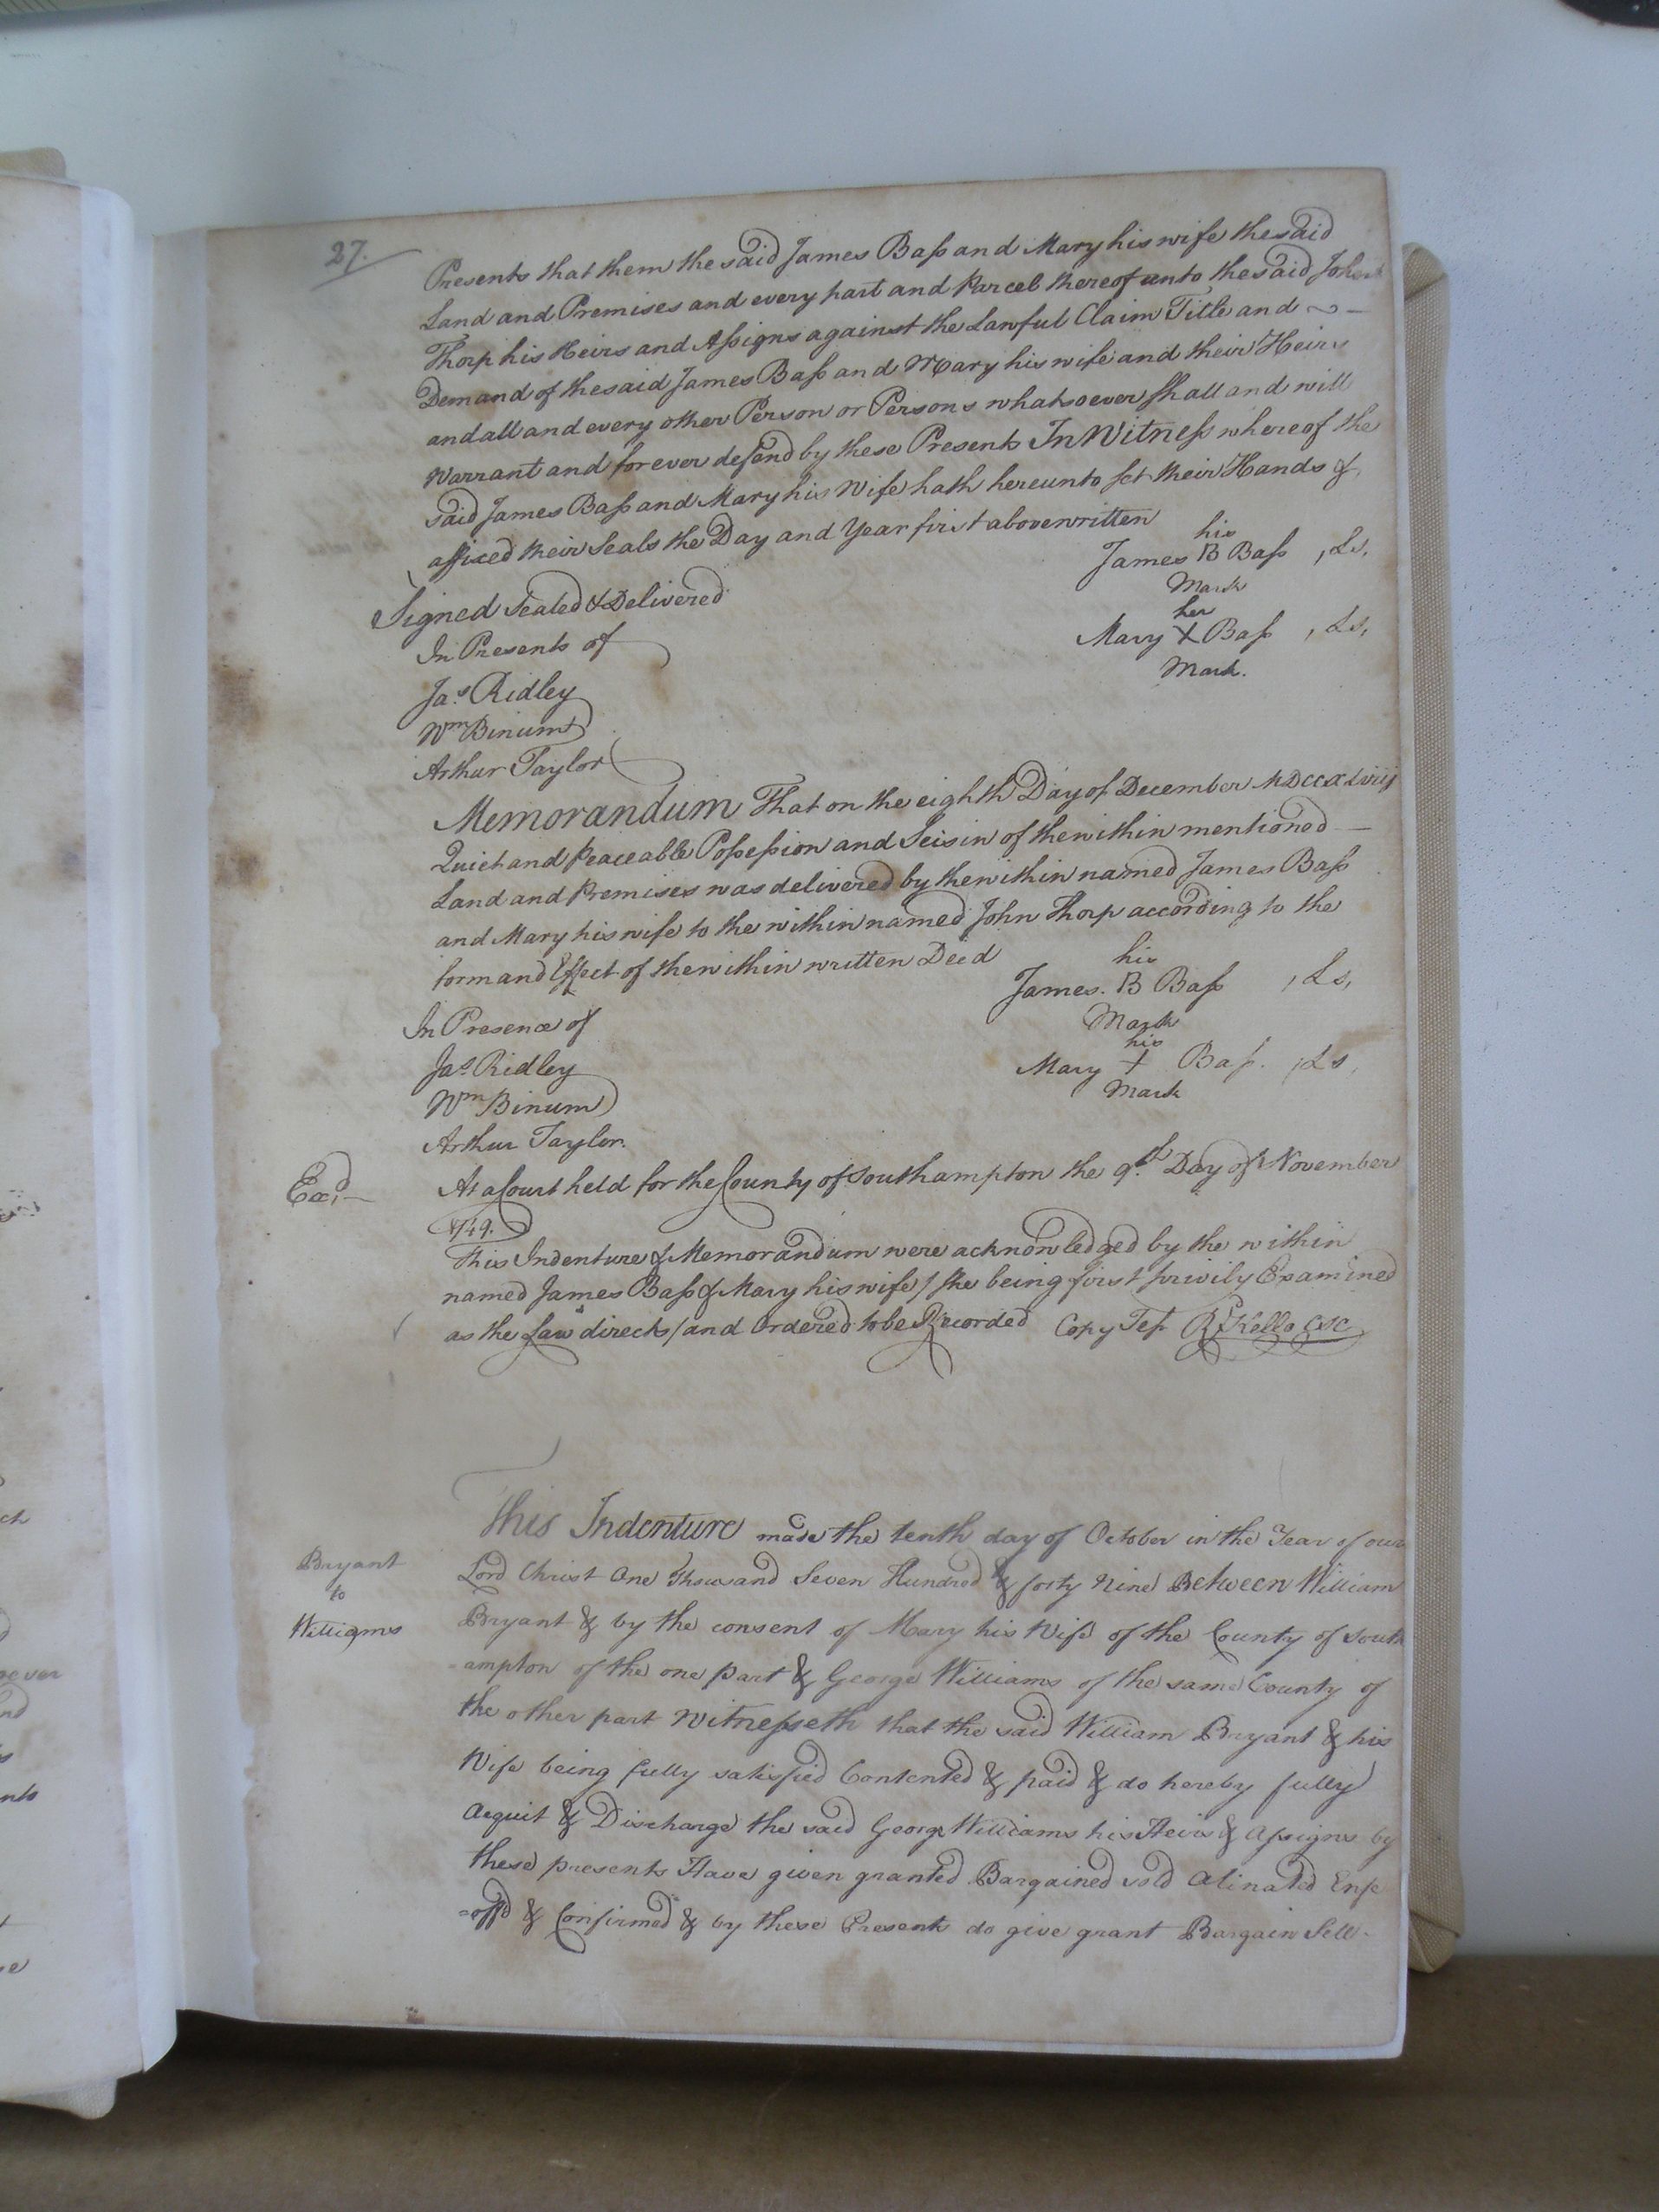 27.
Presents that them the said James Bass and Mary his wife the said
Land and Premises and every part and Parcel thereof unto the said John
Thorp his Heirs and Assigns against the Lawful Claim Title and
Demand of the said James Bass and Mary his wife and their Heirs
and all and every other Person or Persons whatsoever shall and will
warrant and for ever defend by these Presents In Witness whereof the
said James Bass and Mary his Wife hath hereunto set their Hands &
affixed their Seals the Day and Year first abovewritten
his
James B Bass , Ls,
Mark
Signed Sealed & Delivered
her
In Presents of
Mary X Bass , Ls,
Mark.
Jas Ridley
Wm Binum
Arthur Taylor
Memorandum That on the eighth Day of December MDCCXLviij
Quiet and Peaceable Possession and Seisin of the within mentioned
Land and Premises was delivered by the within named James Bass
and Mary his wife to the within named John Thorp according to the
form and Effect of the within written Deed
his
James. B Bass , Ls,
Mark
In Presence of
his
Jas Ridley
Mary + Bass. , Ls,
Mark
Wm Binum
Arthur Taylor.
Exd.
At a Court held for the County of Southampton the 9.th Day of November
1749.
This Indenture & Memorandum were acknowledged by the within
named James Bass & Mary his wife / she being first privily Examined
as the Law directs / and Ordered to be Recorded Copy Tes Rd Kello CSC
This Indenture made the tenth day of October in the Year of our
Bryant
to
Williams
Lord Christ One Thousand Seven Hundred & forty Nine Between William
Bryant & by the consent of Mary his Wife of the County of South
-ampton of the one part & George Williams of the same County of
the other part Witnesseth that the said William Bryant & his
Wife being fully satisfied Contented & paid & do hereby fully
Acquit & Discharge the said George Williams his Heirs & Assigns by
these presents Have given granted Bargained sold Alinated Enfe
=offd & Confirmed & by these Presents do give grant Bargain Sell